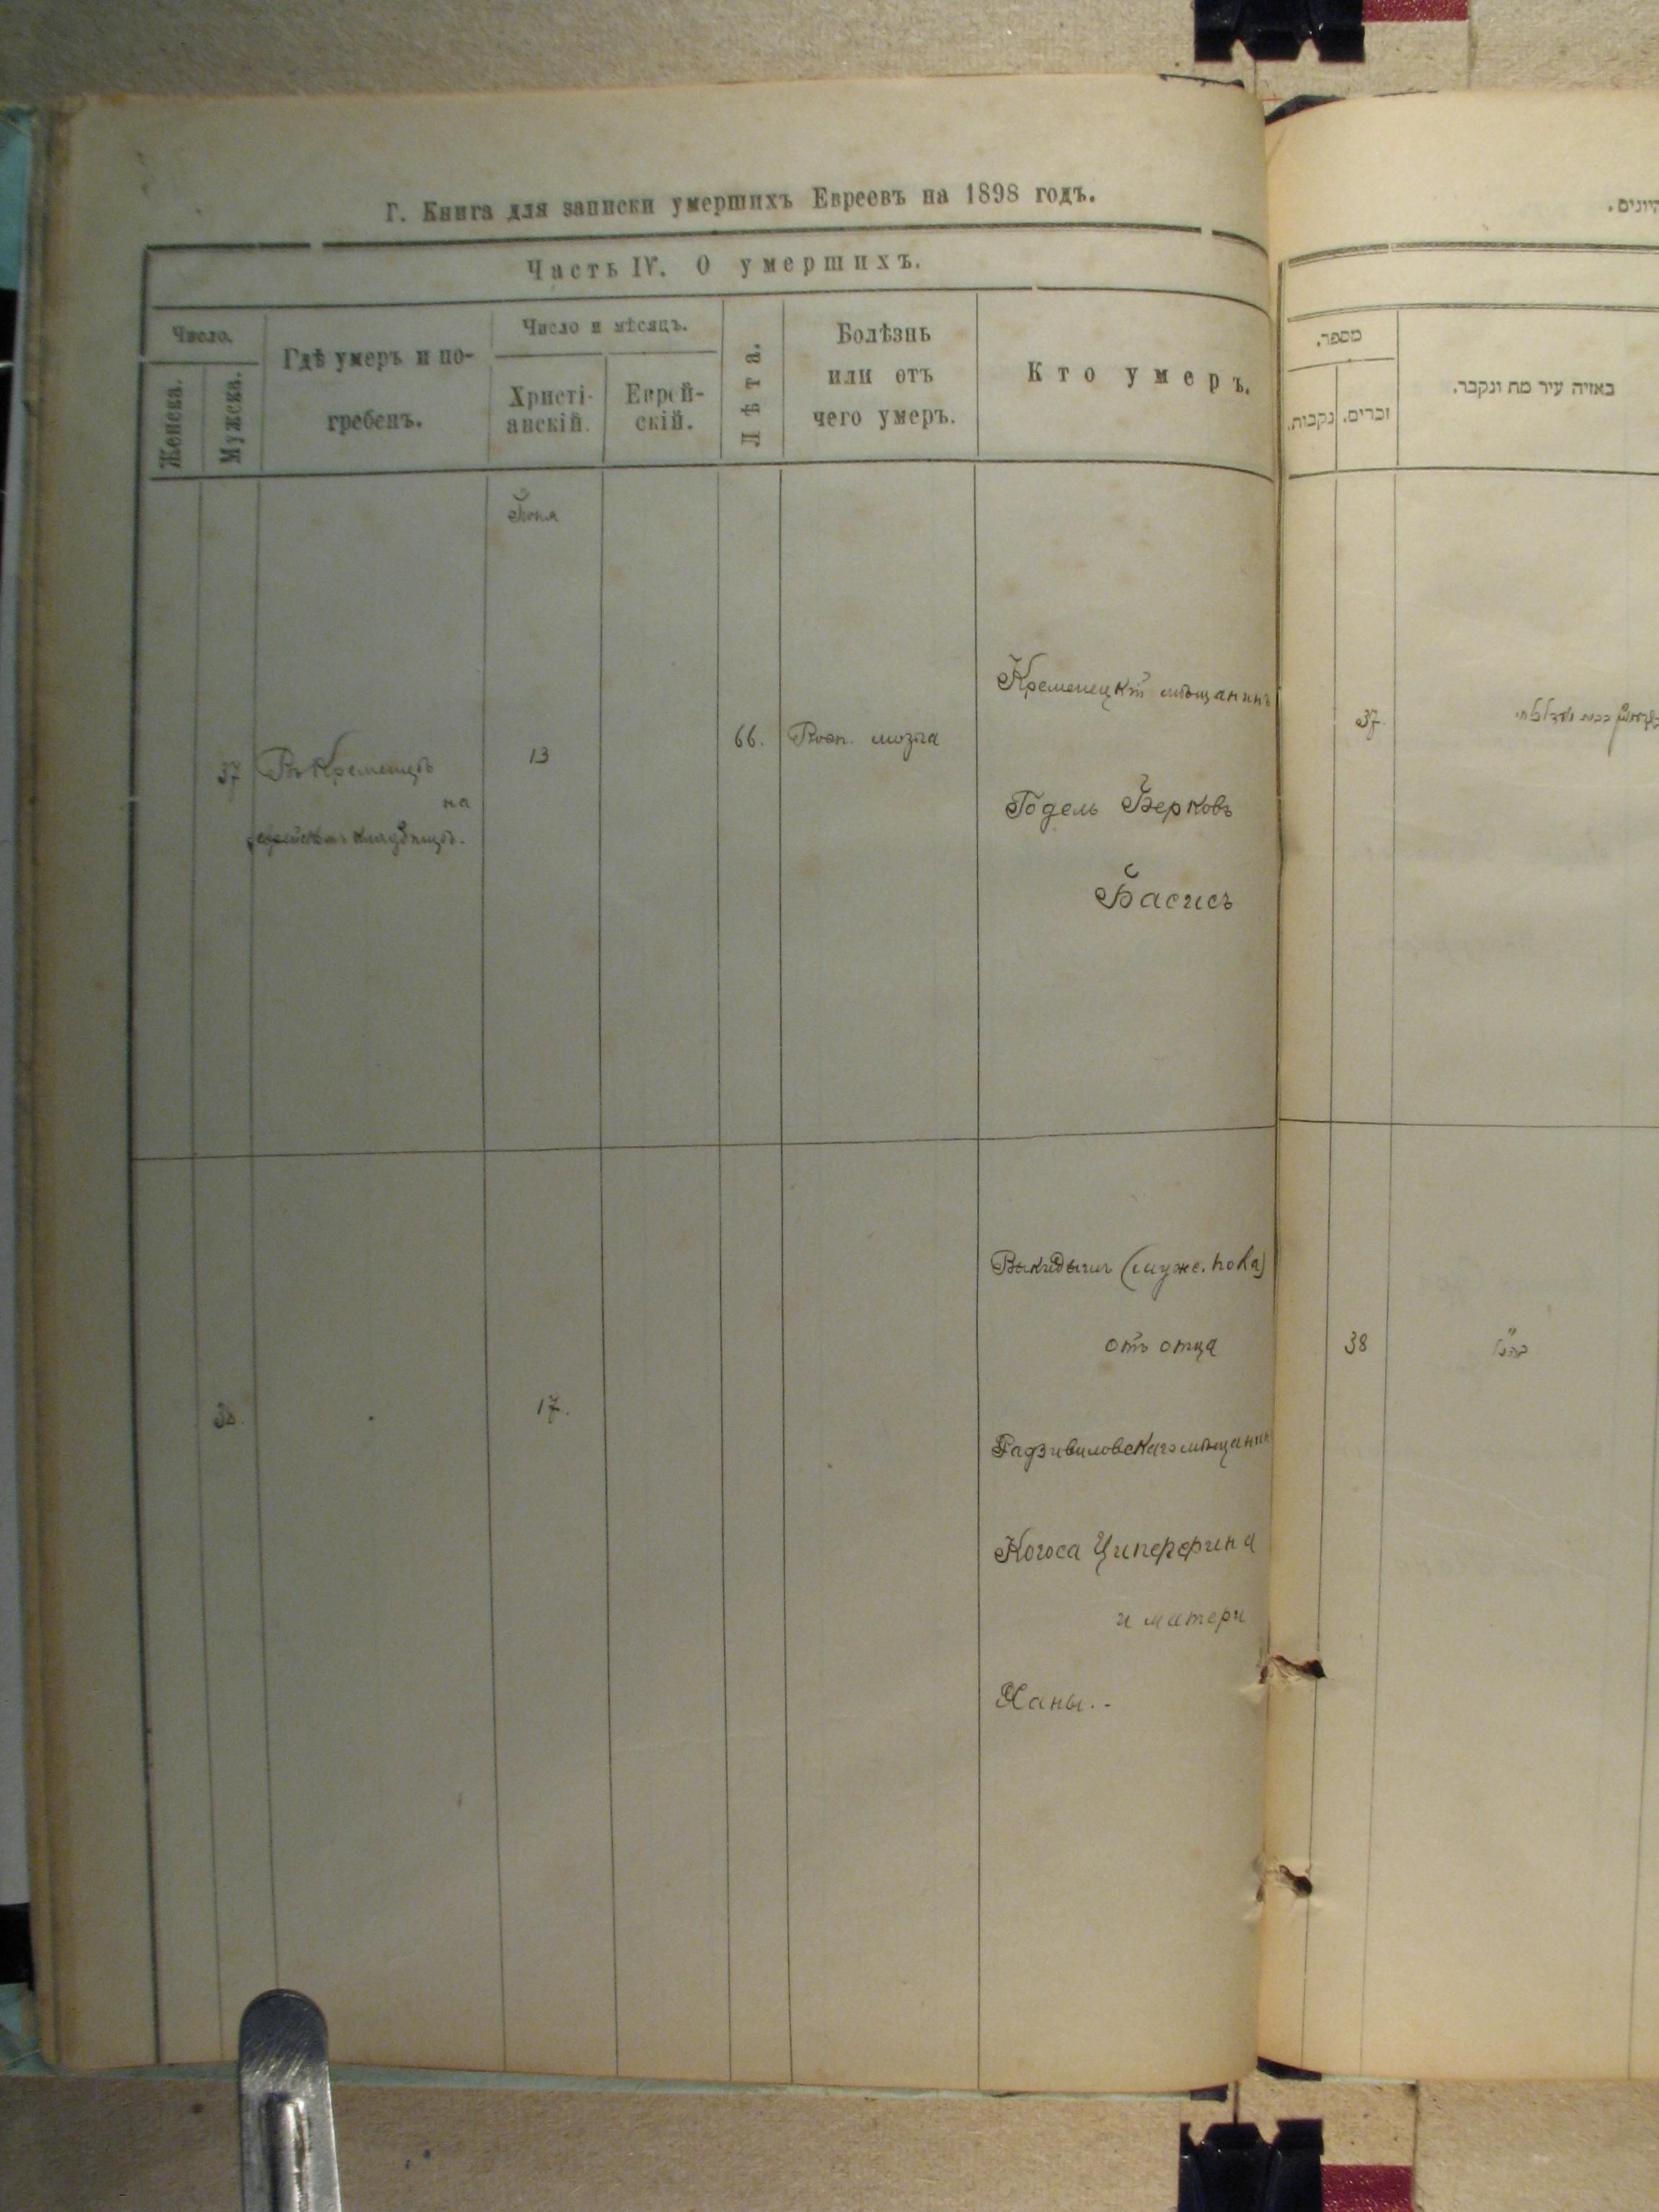 Г. Книга для записки умершихъ Евреевъ на 1898 годъ.
Часть IV. О умершихъ.
Число.
Женска.
Мужска.
Гдѣ умеръ и по-
гребенъ.
Число и мѣсяцъ.
Христі-
анскій.
Еврей-
скій.
Лѣта.
Болѣзнь
или отъ
чего умеръ.
Кто умеръ.
Іюня
37
Въ Кременцѣ
на
еврейскомъ кладбищѣ.
13
66.
Восп. мозга
Кременецкій мѣщанинъ
Годель Берковъ
Басисъ
38.
17.
Выкидышъ (муже. пола)
отъ отца
Радзивиловскаго мѣщанина
Когоса Циперфина
и матери
Ханы.-
מספר.
נקבות.
זכרים.
באיזה עיר מת ונקבר.
37.
38
כנ"ל